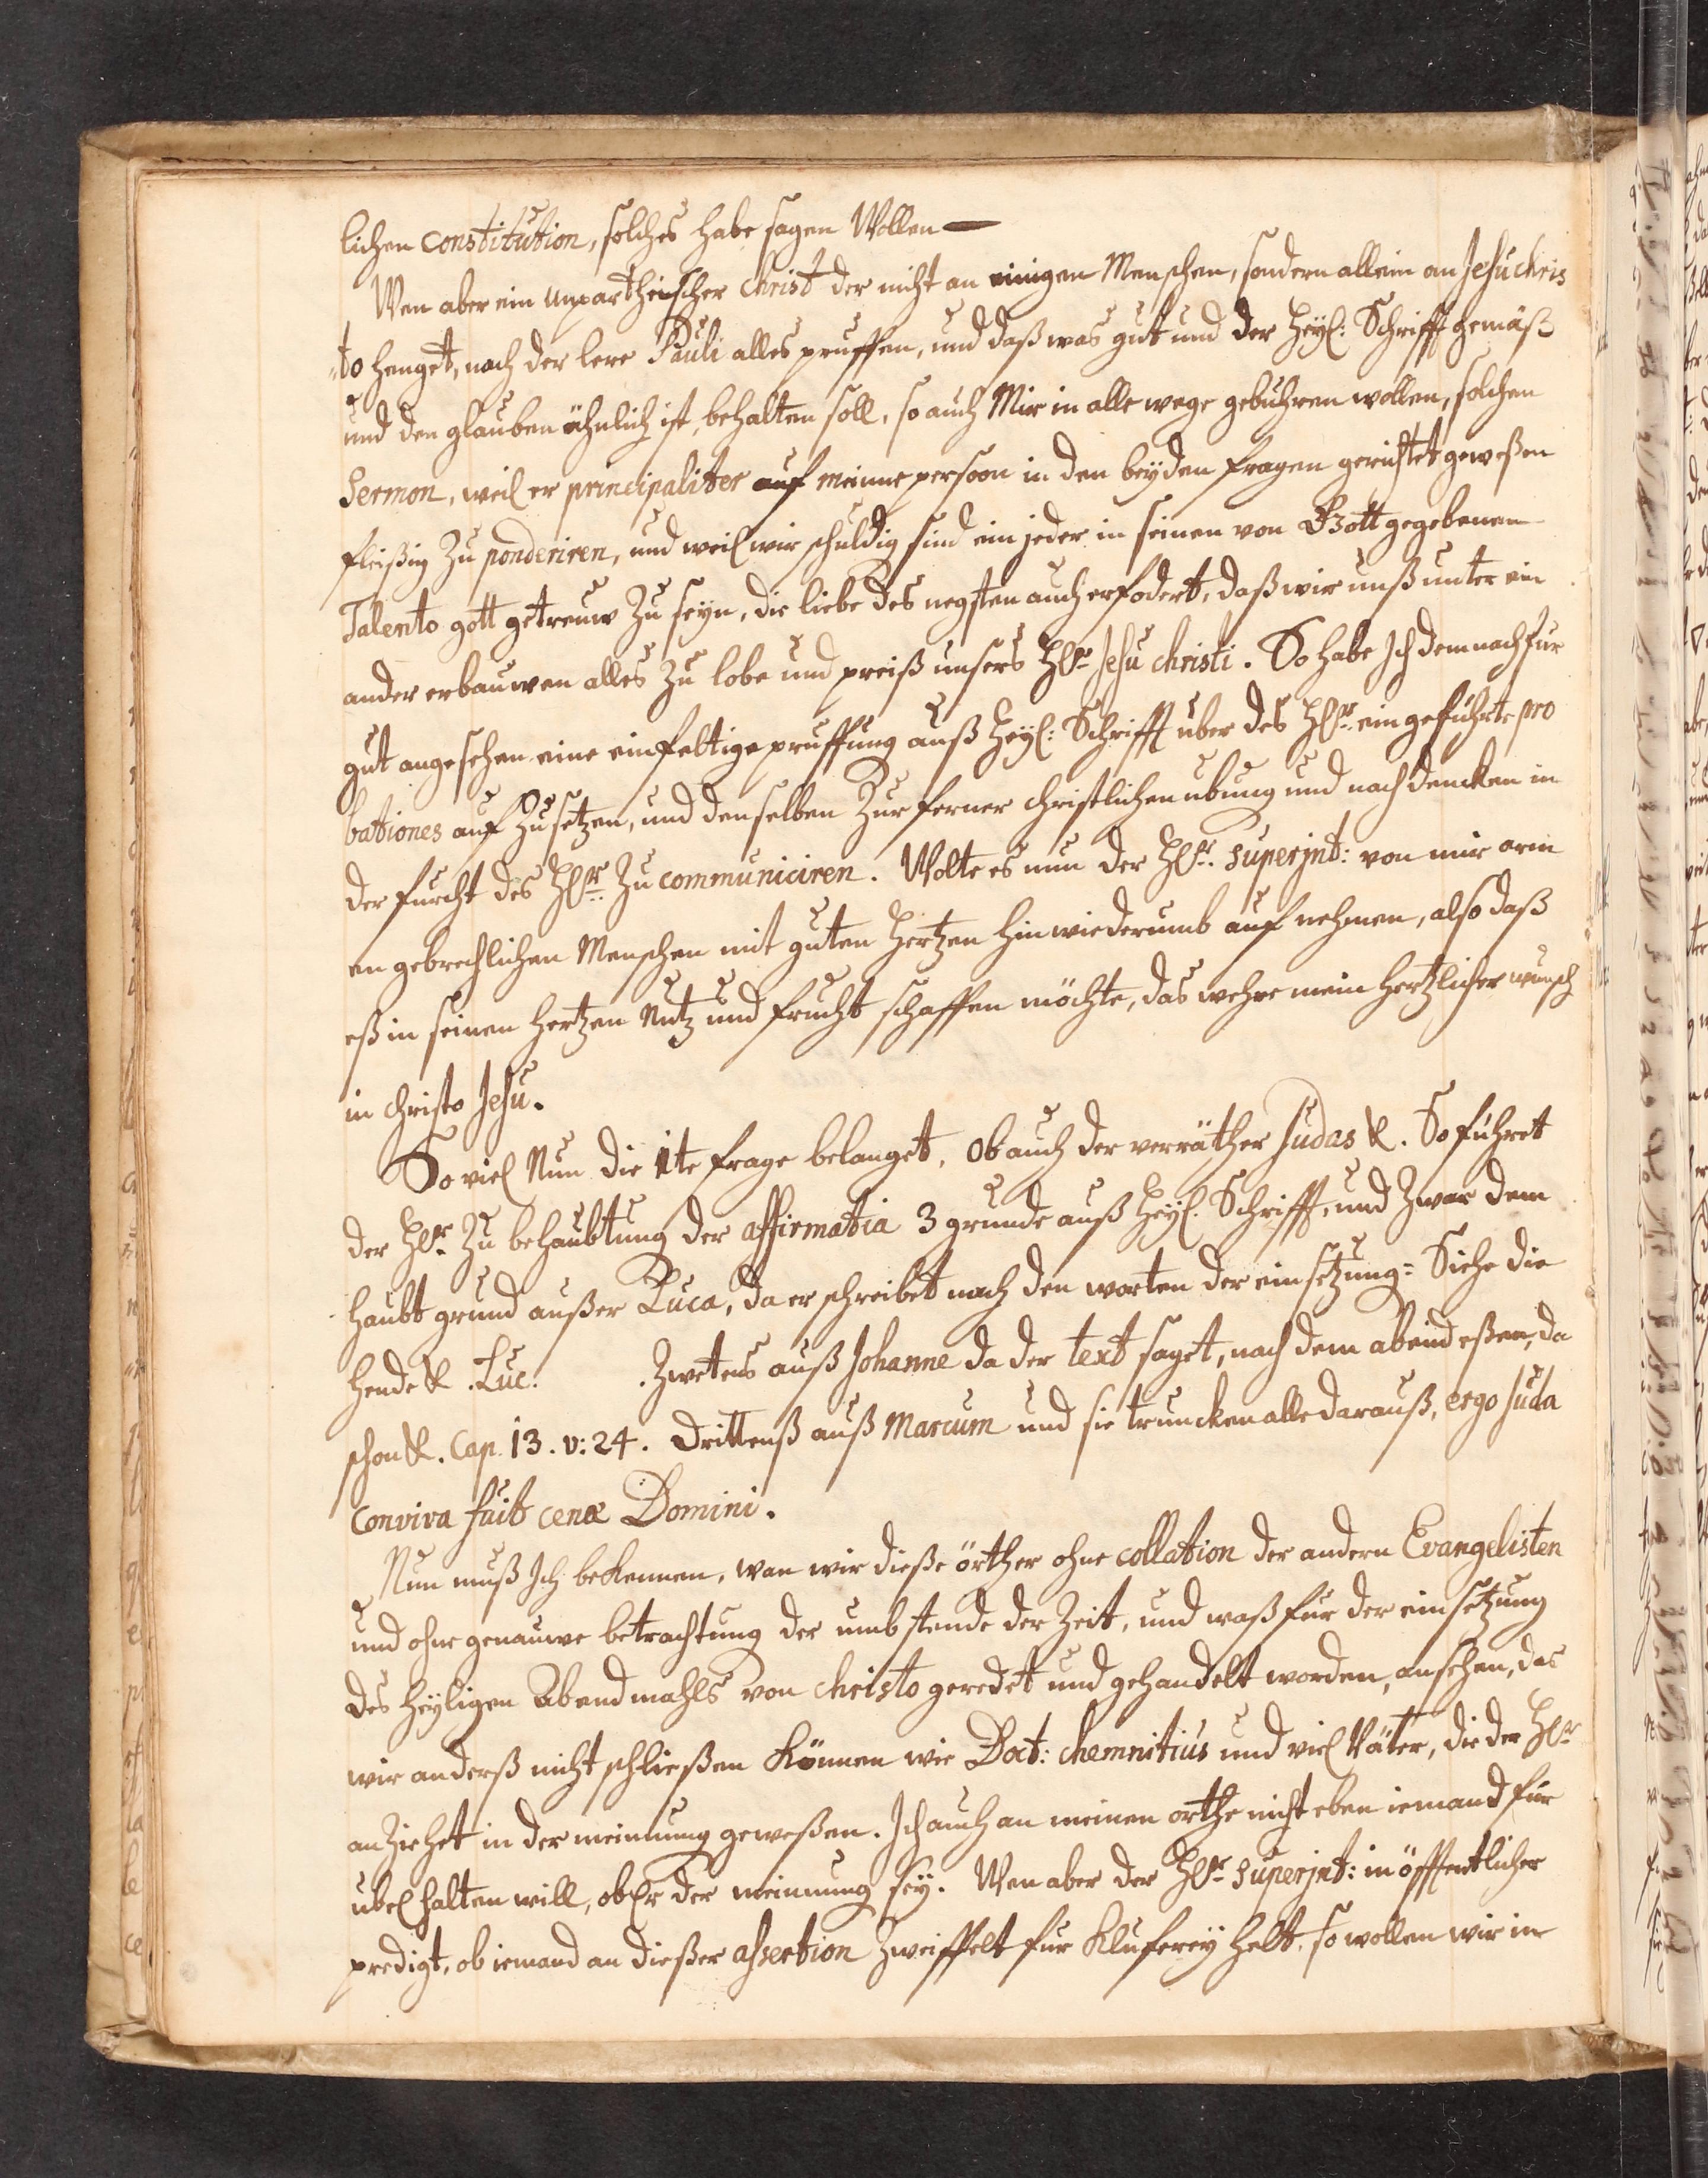 lichen constitution, solches habe sagen Wollen —
Wen aber ein unpartheischer christ der nicht an einigen Menschen, sondern allein an Jesu chris
to henget, nach der lere Pauli alles prüffen, und daß was gut und der Heyl: Schrifft gemäß
und den glauben ähnlich ist, behalten soll, so auch Mir in alle wege gebühren wollen, solchen
Sermon, weil er principaliter auf meine persoon in den beyden fragen gerichtet geweßen
fleißig Zu ponderiren, und weil wir schuldig sind ein jeder in seinen von Gott gegebenen
Talento gott getreuw Zu seyn, die liebe des negsten auch erfodert, daß wir unß unter ein
ander erbauwen alles Zu lobe und preiß unsers HEr Jesu christi. So habe Ich demnach für
gut angesehen eine einfeltige prüffung auß Heyl: Schrifft über des HEr. eingeführte pro
bationes auf Zusetzen, und denselben Zur ferner christlichen übung und nach dencken in
der furcht des HEr: Zu communiciren. Wolte es nun der HEr. superjnt: von mir arm
en gebrechlichen Menschen mit guten Hertzen hinwiederumb auf nehmen, also daß
eß in seinen Hertzen Nutz und frucht schaffen möchte, das wehre mein Hertzlicher wunsch
in christo Jesu.
So viel Nun die 1te frage belanget, Ob auch der verräther Judas &. So führet
der HEr. Zu behaubtung der affirmatia 3 grunde auß Heyl. Schrifft, und Zwar dem
Haubt grund außer Luca, da er schreibet nach den worten der einsetzung: Siehe die
Hende &. Luc: . Zwetens auß Johanne da der text saget, nach dem abend eßen, da
schon &. Cap. 13. v: 24. Drittenß auß Marcum und sie truncken alle darauß, ergo Juda
conviva fuit cenæ Domini.
Nun muß Ich bekennen, wan wir dieße örther ohne collation der andern Evangelisten
und ohne genauwe betrachtung der umbstende der Zeit, und waß für der einsetzung
des Heyligen Abendmahls von christo geredet und gehandelt worden, ansehen, das
wir anderß nicht schließen können wie Doct: chemnitius und viel Väter, die der HEr
an Ziehet in der meinung geweßen. Ich auch an meinen orthe nicht eben iemand für
übel halten will, ob Er der meinung sey. Wen aber der HEr superjnt: in öffentlicher
predigt, ob iemand an dießer assertion Zweiffelt für Kluferey helt, so wollen wir in